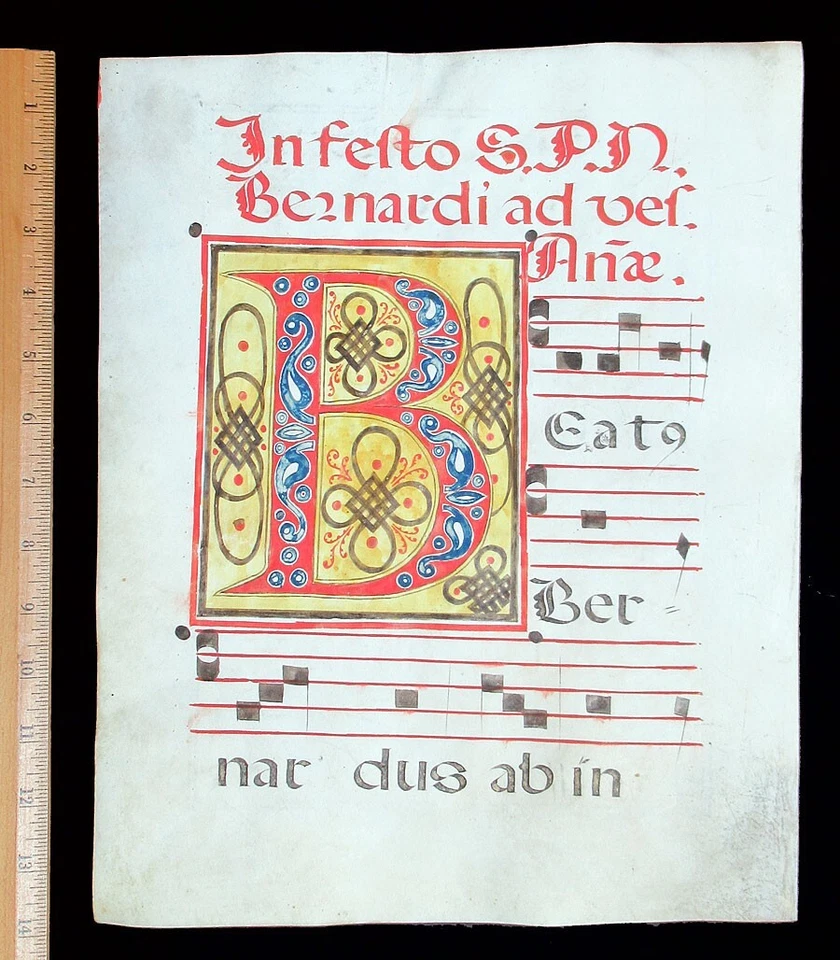 In festo S.P.N.
Bernardi ad ves.
Añæ.
B
Eatꝯ
Ber=
nar dus ab in
1
2
3
4
5
6
7
8
9
10
11
12
13
14